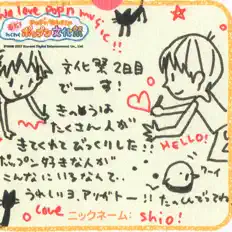 We love pop'n music!!
ポップン文化祭
文化祭2日目
でーす!
きょうは
たくさん人が
きてくれてびっくりした!!
ポップン好きな人が
こんなにいるなんて、
うれしいヨ、アリガトー!!
たのしんでってね
HELLO!
ワーイ
Love
ニックネーム: shio!